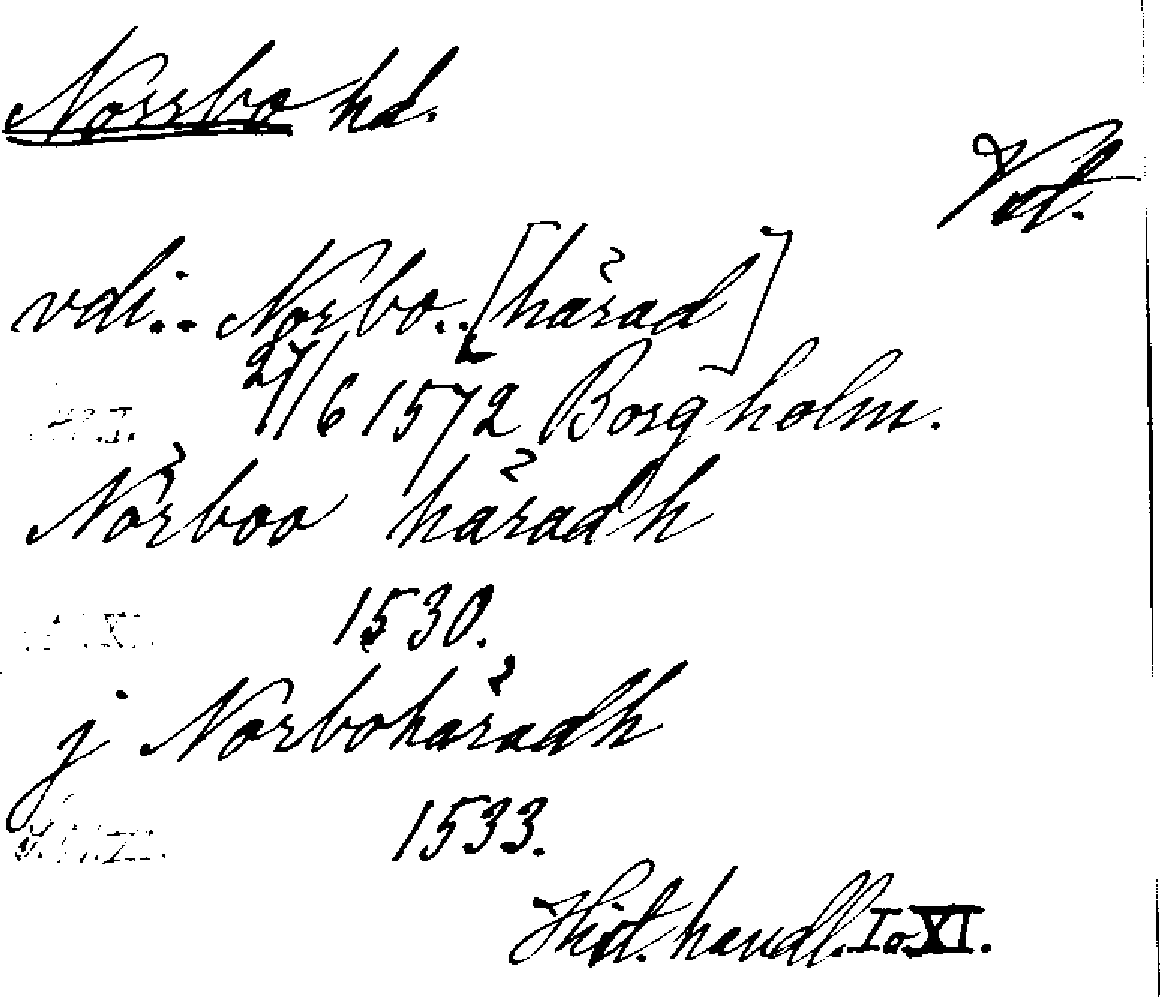 Norrbo hd.
Vst.
vdi.. Norbo.. [härad]
27/6 1572 Borgholm.
Norboo häradh
1530.
j Norbohäradh
1533.
Hist. handl. I o XI.